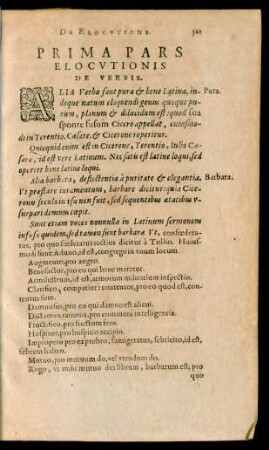 DE ELOCVTIONE.
PRIMA PARS
ELOCVTIONIS
DE VERBIS.
ALIA Verba sunt pura & bene Latina, in- Pura.
deque natum eloquendi genus quoque pu-
rum, planum & dilucidum est: quod sua
sponte fusum Cicero appellat, cuiusmo-
di in Terentio, Cæsare, & Cicerone reperitur.
Quicquid enim est in Cicerone, Terentio, Iulio Cæ-
sare, id est verè Latinum. Nec satis est latinè loqui, sed
oportet bene latinè loqui.
Alia barbara, deflectentia à puritate & elegantia, Barbara.
Vt præstare iuramentum, barbarè dicitur: quia Cice-
ronis seculo in vsu non fuit, sed sequentibus ætatibus
vsurpari demum cœpit.
Sunt etiam voces nonnullæ in Latinum sermonem
infusæ quidem, sed tamen sunt barbaræ. Vt, confœdera-
tus, pro quo fœderatus rectius dicitur à Tullio. Huius-
modi sunt Aduno, id est, congrego in vnum locum.
Augmento, pro augeo.
Benefactor, pro eo qui bene meretur.
Armilustrium, id est, armorum militarium inspectio.
Clarifico, compatior: contentor, pro eo quod est, con-
tentus sum.
Damnosus, pro eo qui damno est alicui.
Dictamen rationis, pro communi intelligentia.
Fructifico, pro fructum fero.
Hospitor, pro hospitio accipio.
Impropero pro exprobro, famigeratus, febricito, id est,
febrem habeo.
Mutuo, pro mutuum do, vel vendum do.
Rogo, vt mihi mutuò des librum, barbarum est, pro
quo